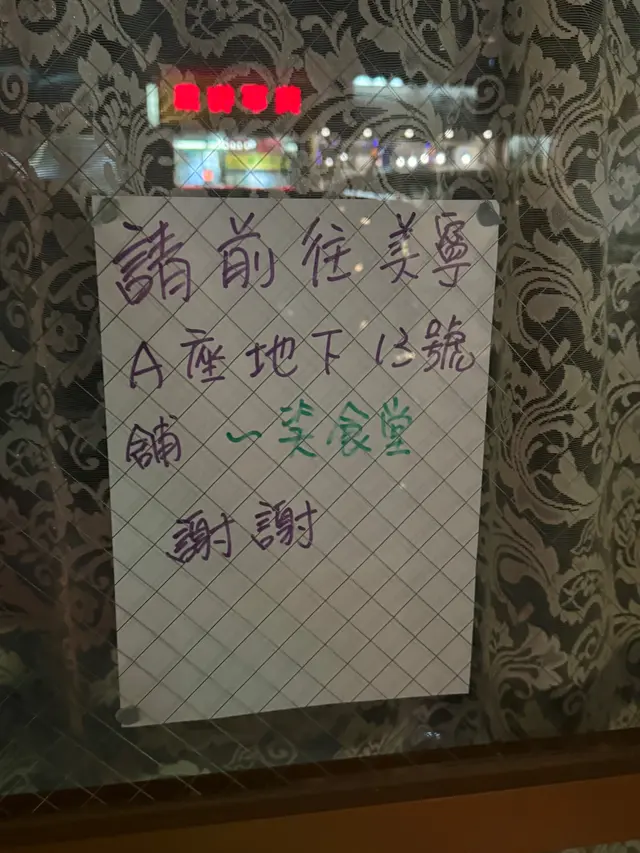 請前往美寧
A座地下13號
舖 一笑食堂
謝謝